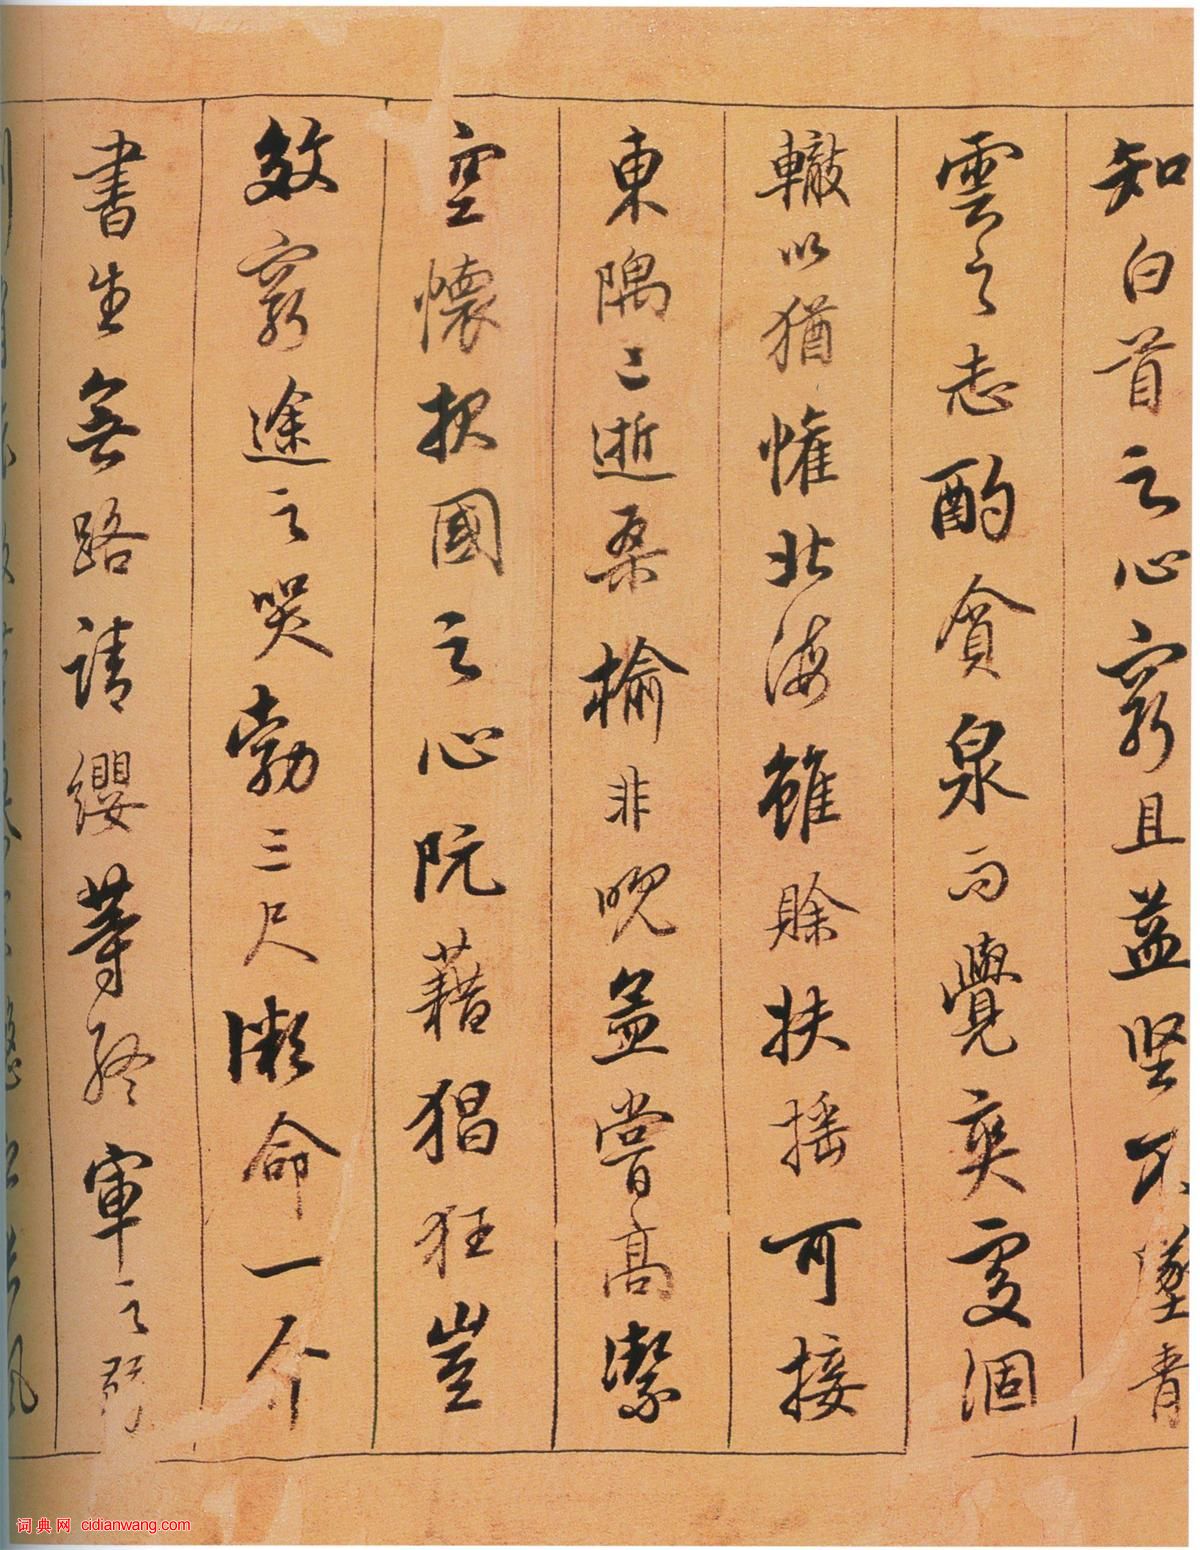 知白首之心窮且益坚不墜青
雲之志酌貪泉而覺爽處涸
轍以猶懽北海雖賒扶搖可接
東隅已逝桑榆非晚孟嘗高潔
空懷报國之心阮藉猖狂豈
效窮途之哭勃三尺微命一个
書生無路請纓等終軍之弱
词典网 cidianwang.com